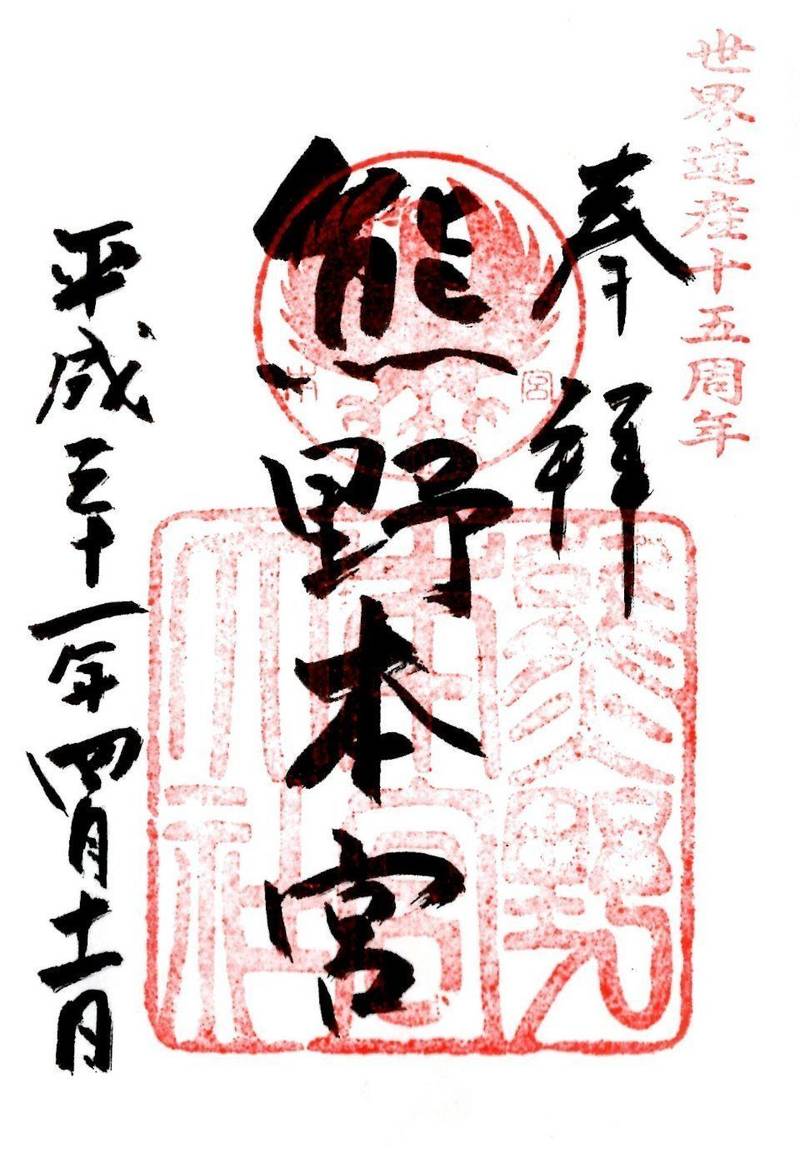 世界遺産十五周年
奉拝
熊野本宮
本宮
熊野
本宮
大社
平成三十一年四月十二日